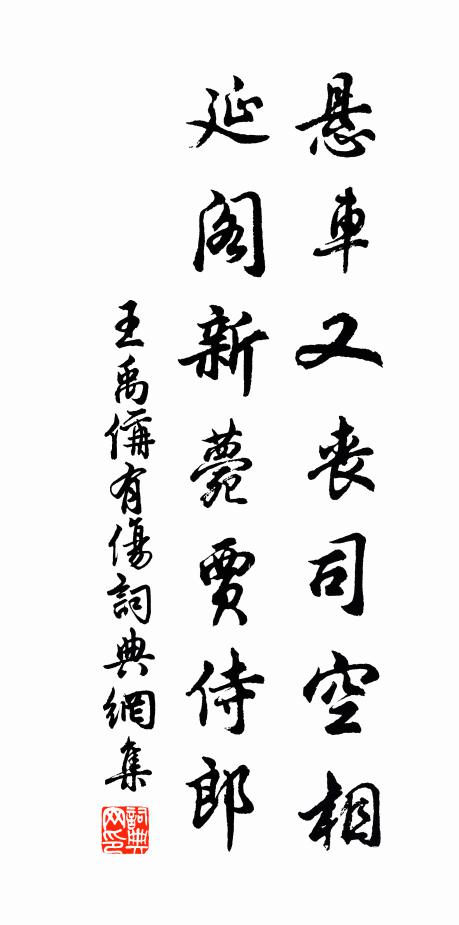 悬車又丧司空相
延阁新薨賈侍郎
王禹偁有傷詞典網集
詞典网印